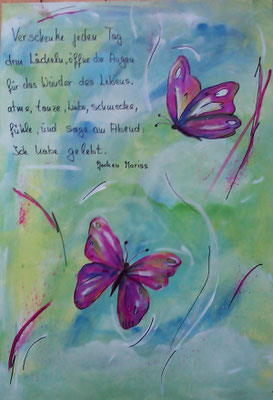 Verschenke jeden Tag
dein Lächeln, öffne die Augen
für das Wunder des Lebens.
atme, tanze, liebe, schmecke,
fühle, und sage am Abend:
Ich habe gelebt.
Jochen Mariss